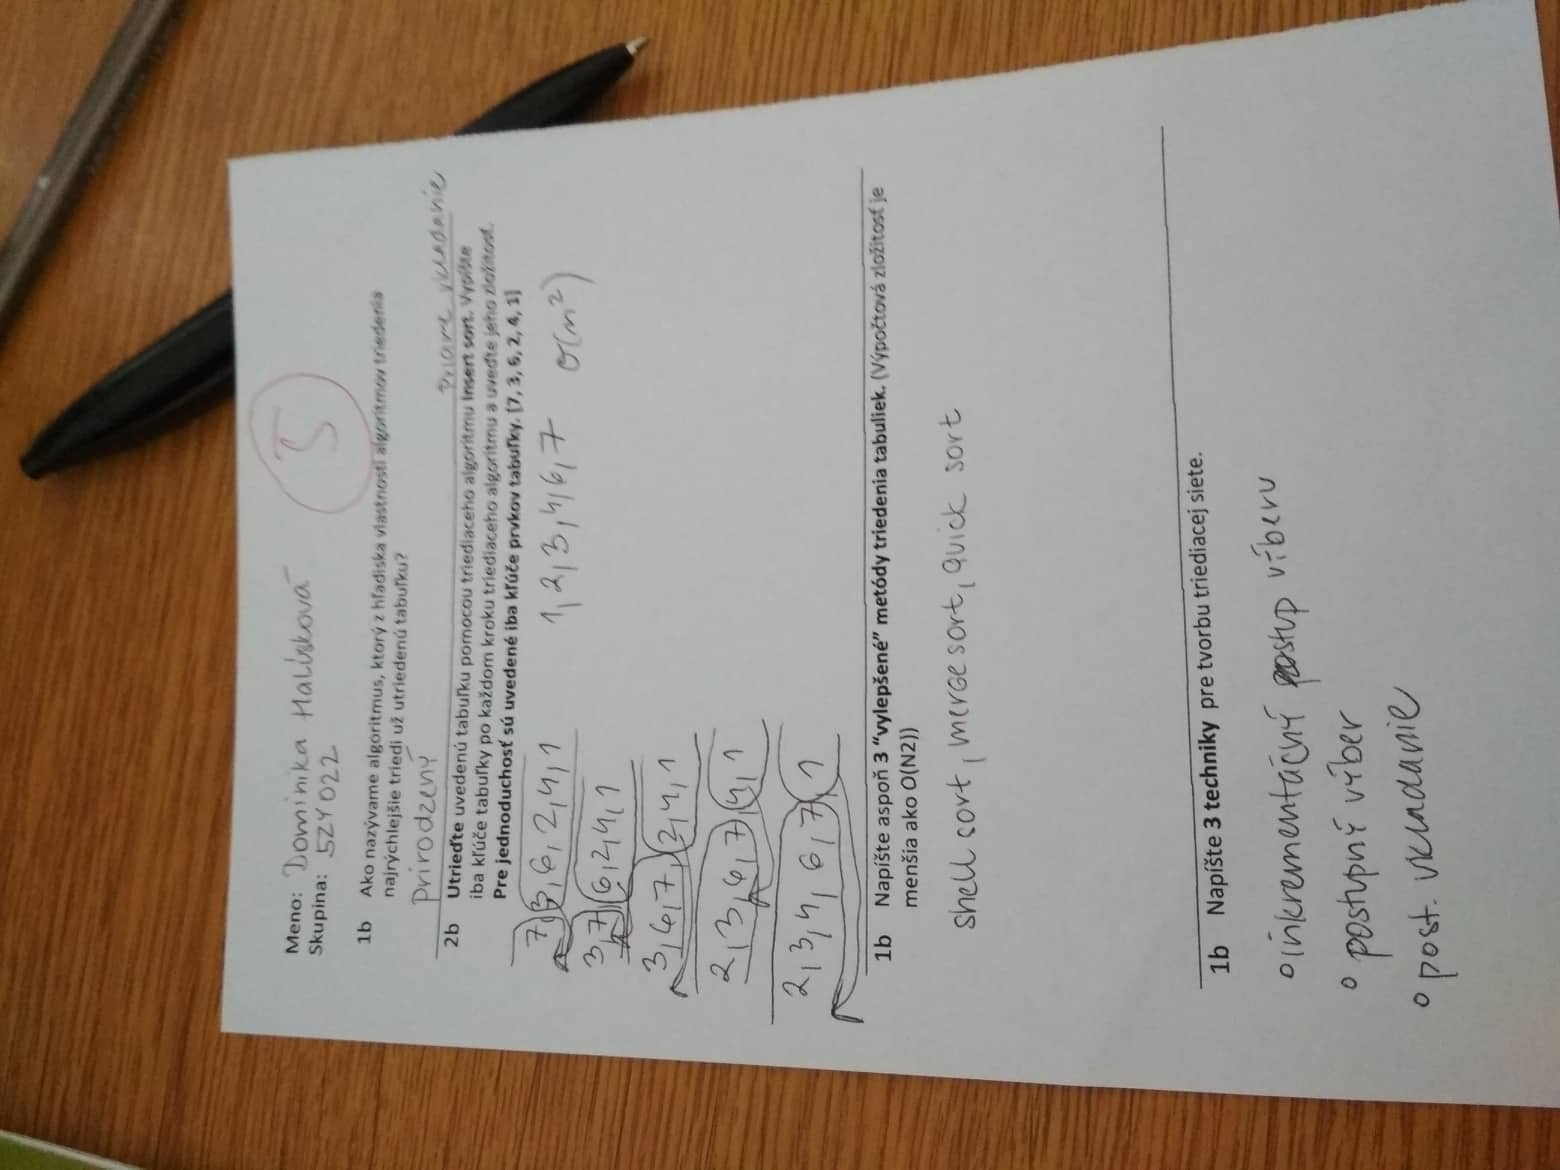 Meno: Dominika Halísková
Skupina: 5ZY022
5
1b Ako nazývame algoritmus, ktorý z hľadiska vlastností algoritmov triedenia
najrýchlejšie triedi už utriedenú tabuľku?
Prirodzený
priame vkladanie
2b Utrieďte uvedenú tabuľku pomocou triediaceho algoritmu Insert sort. Vypíšte
iba kľúče tabuľky po každom kroku triediaceho algoritmu a uveďte jeho zložitosť.
Pre jednoduchosť sú uvedené iba kľúče prvkov tabuľky. [7, 3, 6, 2, 4, 1]
7,3,6,2,4,1 1,2,3,4,6,7 O(n²)
3,7,6,2,4,1
3,6,7,2,4,1
2,3,6,7,4,1
2,3,4,6,7,1
1b Napíšte aspoň 3 “vylepšené” metódy triedenia tabuliek. (Výpočtová zložitosť je
menšia ako O(N2))
shell sort, merge sort, quick sort
1b Napíšte 3 techniky pre tvorbu triediacej siete.
o inkrementáčný postup víberu
o postupní výber
o post. vkladanie